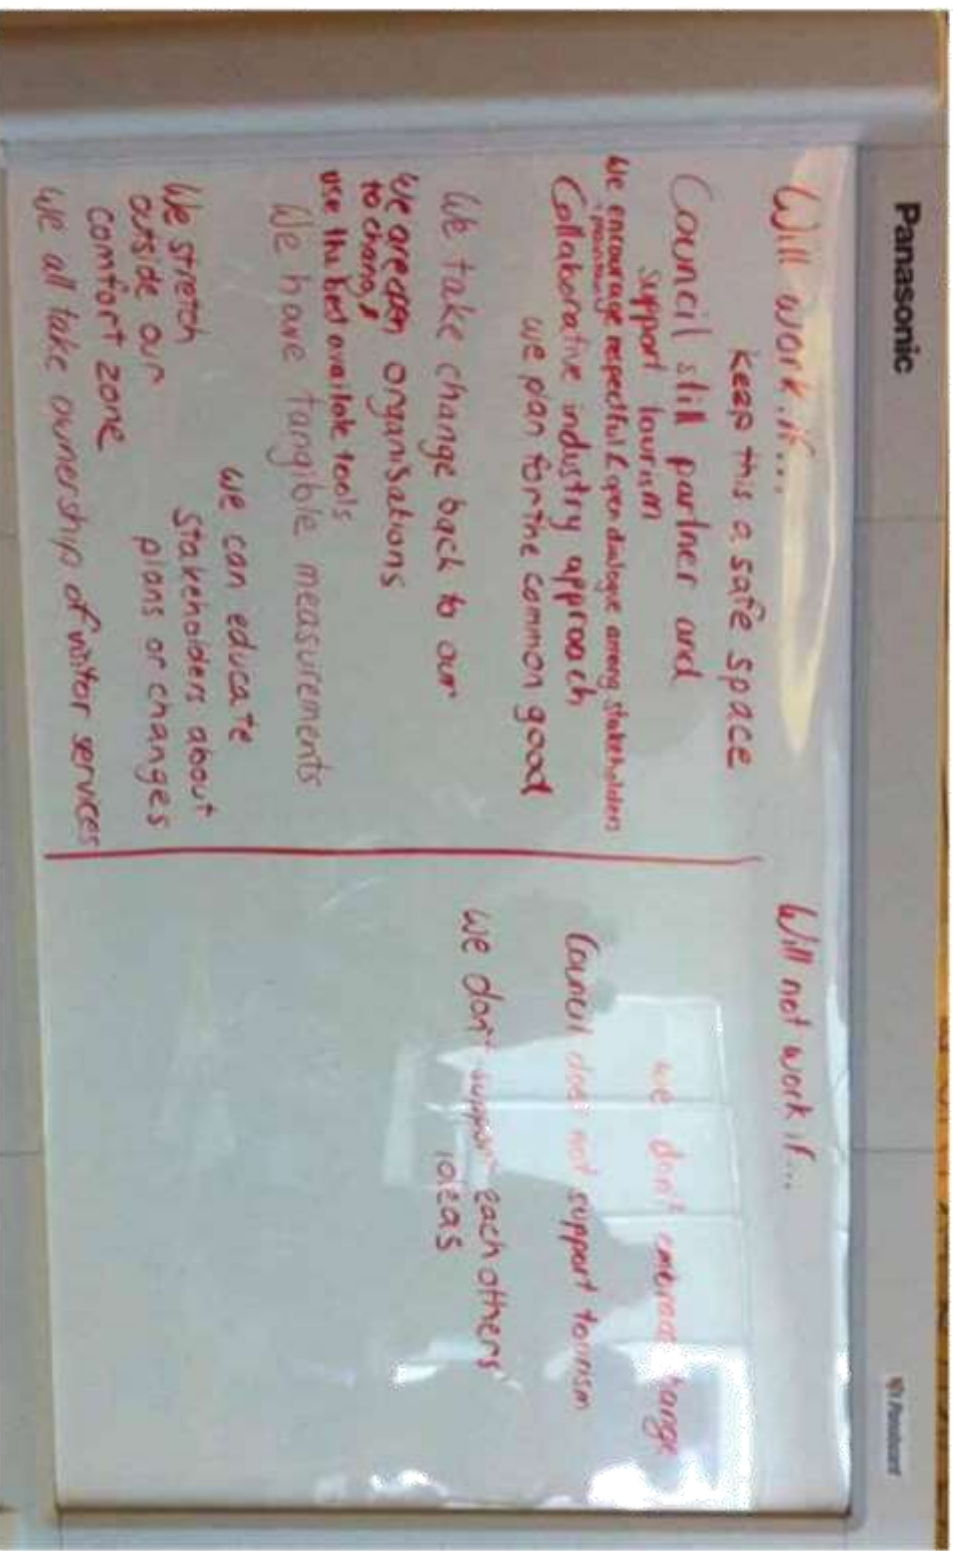 Panasonic
Panaboard
Will work if...
Keep this a safe space
Council still partner and
support tourism
We encourage respectful & open dialogue among stakeholders
Collaborative industry approach
we plan for the common good
We take change back to our
organisations
We are open
to change
use the best available tools
We have tangible measurements
We can educate
stakeholders about
plans or changes
We stretch
outside our
comfort zone
We all take ownership of visitor services
Will not work if...
we don't embrace change
Council does not support tourism
We don't support each others'
ideas